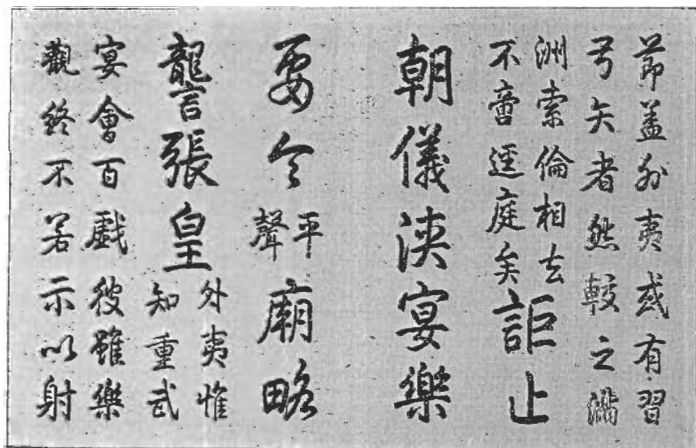 節蓋外夷或有習
弓矢者然較之滿
洲索倫相去
不啻逕庭矣詎止
朝儀浹宴樂
要令平聲廟略
讋張皇外夷惟知重武
宴會百戲彼雖樂
觀終不若示以射